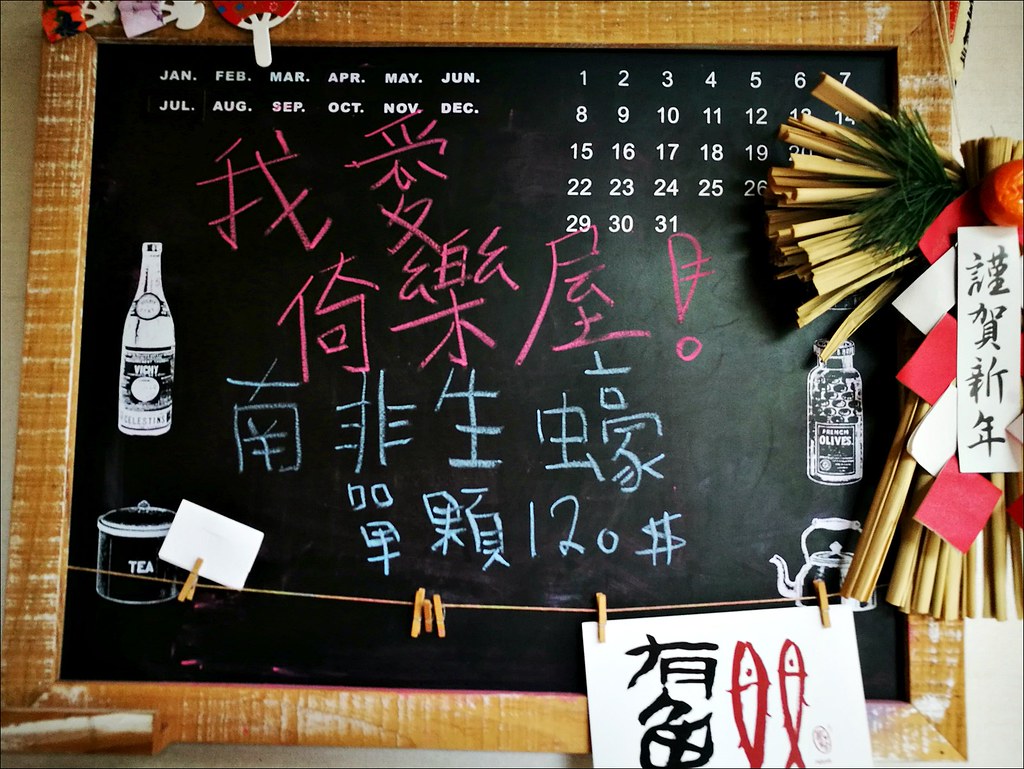 JAN. FEB. MAR. APR. MAY. JUN.
JUL. AUG. SEP. OCT. NOV. DEC.
1 2 3 4 5 6 7
8 9 10 11 12 13 14
15 16 17 18 19 20
22 23 24 25 26
29 30 31
我愛
倚樂屋!
南非生蠔
單顆120$
謹賀新年
VICHY
CELESTINS
FRENCH
OLIVES.
TEA
有魚